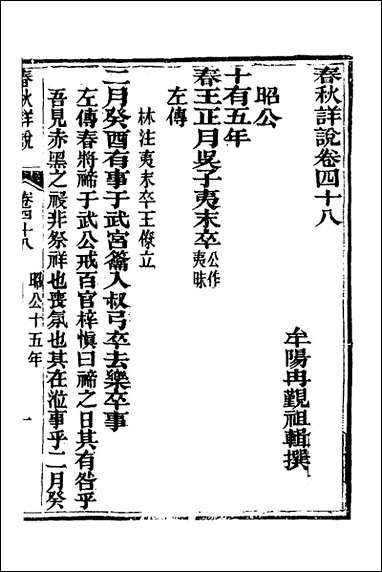 春秋詳說卷四十八
牟陽冉覲祖輯撰
昭公
十有五年
春王正月吳子夷末卒公作夷昧
左傳
林注夷末卒王僚立
二月癸酉有事于武宮籥入叔弓卒去樂卒事
左傳春將禘于武公戒百官梓慎曰禘之日其有咎乎
吾見赤黑之祲非祭祥也喪氛也其在涖事乎二月癸
春秋詳說
卷四十八
昭公十五年
一